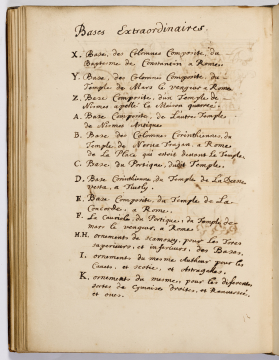 Bases Extraordinaires.
X. Base, des Colonnes Composite, du
Baptesme de Constantin a Rome.
Y. Base, des Colonnes Composite, du
Temple de Mars le vengeur a Rome
Z. Base Composite, d'un Temple de
Nismes apellé La Maison quarree.
A. Base Composite, de L'autre Temple
de Nismes Antique
B. Base des Colonnes Corinthiennes, du
Temple, de Nerve Trajan, a Rome
de La Place qui estoit devant le Temple.
C. Base, du Portique, dudit Temple.
D. Base Corinthienne, du Temple de La Deesse
vesta, a Tivoly.
E. Base Composite, du Temple de La
Concorde, a Rome.
F. La du Portique, du Temple de
mars le vengeur, a Rome
H.H. ornement de scamozy, pour les Tores
superieurs, et inferieurs, des Bases,
I. ornement du mesme Autheur pour les
et scotie, et Astragalles,
K. ornement du mesme, pour les diferentes
sortes de Cymaises droites, et Renversées,
et oves.